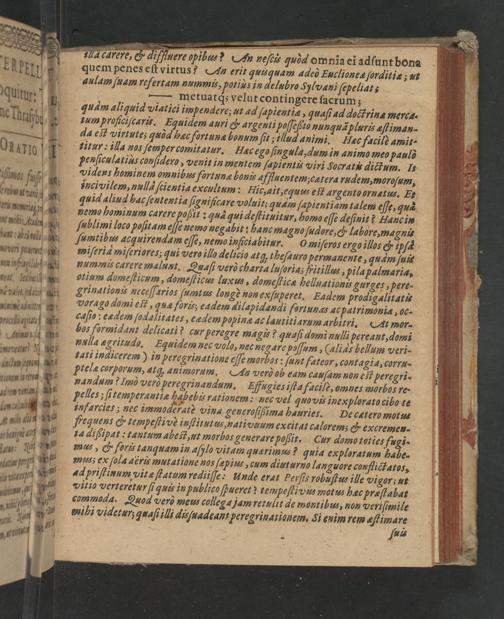 TERPELL
oquitur:
ne Thrasybu
ORATIO
illa carere, & diffluere opibus? An nescis quòd omnia ei adsunt bona
quem penes est virtus? An erit quisquam adeò Euclionea sorditia; ut
aulam suam refertam nummis, potiùs in delubro Sylvani sepeliat;
— metuatq; velut contingere sacrum;
quàm aliquid viatici impendere; ut ad sapientia, quasi ad doctrina merca-
tum proficiscaris. Equidem auri & argenti possessio nunquā pluris æstiman-
da est virtute; quòd hac fortuna bonum sit; illud animi. Hac facilè amit-
titur: illa nos semper comitatur. Hac ego singula, dum in animo meo paulò
pensiculatiùs considero, venit in mentem sapientis viri Socratis dictum. Is
videns hominem omnibus fortuna bonis affluentem; cætera rudem, morosum,
incivilem, nullâ scientia excultum: Hic, ait, equus est argento ornatus. Et
quid aliud hac sententia significare voluit; quàm sapientiam talem esse, quâ
nemo hominum carere possit: quâ qui destituitur, homo esse desinit? Hanc in
sublimi loco positam esse nemo negabit: hanc magno sudore, & labore, magnis
sumtibus acquirendam esse, nemo inficiabitur. O miseros ergo illos & ipsâ
miseriâ miseriores; qui vero illo delicio atq; thesauro permanente, quàm suis
nummis carere malunt. Quasi verò charta lusoria; fritillus, pila palmaria,
otium domesticum, domesticus luxus, domestica helluationis gurges, pere-
grinationis necessarios sumtus longè non exsuperet. Eadem prodigalitatis
vorago domi est, quæ foris; eadem dilapidandi fortunas ac patrimonia, oc-
casio: eadem sodalitates, eadem popinæ ac lautitiarum arbitri. At mor-
bos formidant delicati? cur peregre magis? quasi domi nulli pereant, domi
nulla ægritudo. Equidem nec volo, nec negare possum, (aliâs bellum veri-
tati indicerem) in peregrinatione esse morbos: sunt fateor, contagia, corru-
ptelæ corporum, atq; animorum. An verò ob eam causam non est peregri-
nandum? Imò verò peregrinandum. Effugies ista facilè, omnes morbos re-
pelles; si temperantiæ habebis rationem: nec vel quovis inexplorato cibo te
infarcies; nec immoderatè vina generosissima hauries. De cætero motus
frequens & tempestivè institutus, nativum excitat calorem; & excremen-
ta dissipat: tantum abest, ut morbos generare possit. Cur domo toties fugi-
mus, & foris tanquam in asylo vitam quærimus? quia exploratum habe-
mus; ex sola aëris mutatione nos sapius, cum diuturno languore conflictatos,
ad pristinum vitæ statum rediisse: Unde erat Persis robustus ille vigor: ut
vitio verteretur si quis in publico spueret? tempestivus motus hac præstabat
commoda. Quod verò meus collega jam retulit de montibus, non verisimile
mihi videtur; quasi illi dissuadeant peregrinationem. Si enim rem æstimare
suis